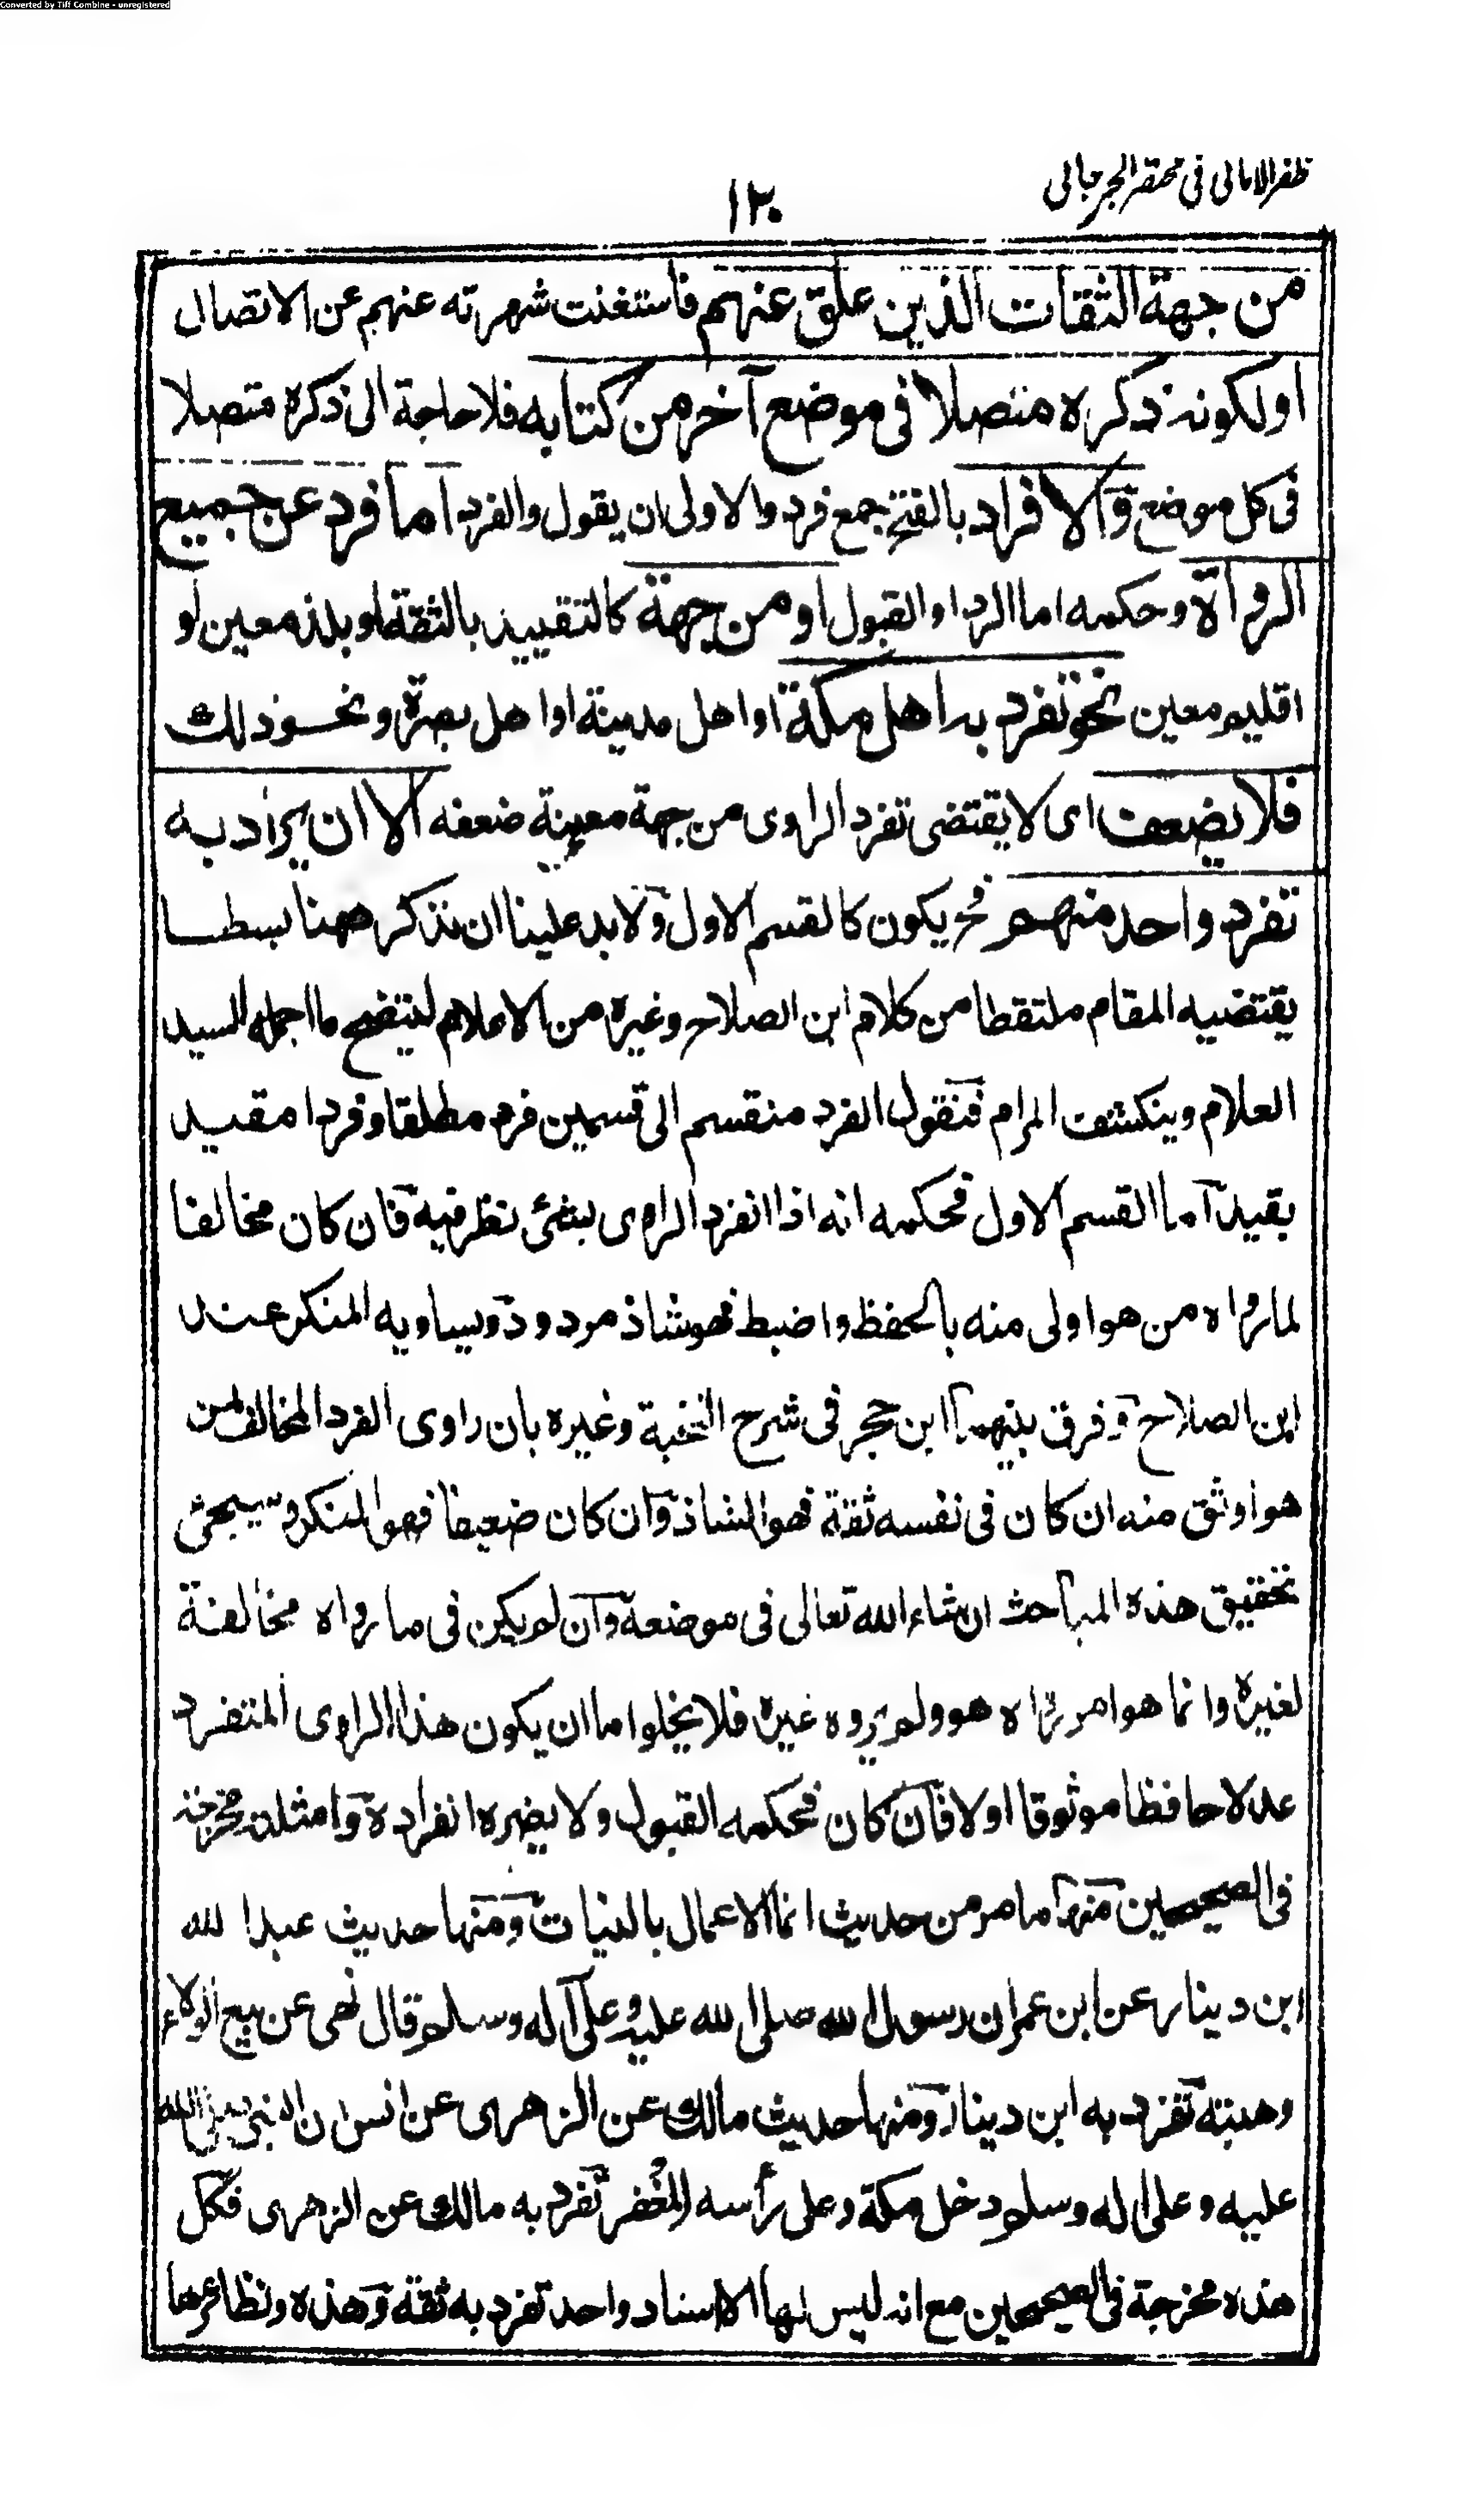 Converted by Tiff Combine - unregistered
ظفر الامالى فى مختصر الجرجانى
١٢٠
من جهة الثقات الذين علق عنهم فاستغنت شهرته عنهم عن الاتصال
او لكونه ذكره متصلا فى موضع آخر من كتابه فلا حاجة الى ذكره متصلا
فى كل موضع والافراد بالفتح جمع فرد والاولى ان يقول والفرد اما فرد عن جميع
الرواة وحكمه اما الرد او القبول او من جهة كالتقييد بالثقة او بلد معين او
اقليم معين نحو تفرد به اهل مكة او اهل مدينة او اهل بصرة ونحو ذلك
فلا يضعف اى لا يقتضى تفرد الراوى من جهة معينة ضعفه الا ان يراد به
تفرد واحد منهم فح يكون كالقسم الاول ولا بد علينا ان نذكر ههنا بسطا
يقتضيه المقام ملتقطا من كلام ابن الصلاح وغيره من الاعلام ليتضح ما اجمله السيد
العلام وينكشف المرام فنقول الفرد منقسم الى قسمين فرد مطلقا وفردا مقيد
بقيد اما القسم الاول فحكمه انه اذا انفرد الراوى بشئ نظر فيه فان كان مخالفا
لما رواه من هو اولى منه بالحفظ واضبط فهو شاذ مردود ويساويه المنكر عند
ابن الصلاح وفرق بينهما ابن حجر فى شرح النخبة وغيره بان راوى الفرد المخالف لمن
هو اوثق منه ان كان فى نفسه ثقة فهو الشاذ وان كان ضعيفا فهو المنكر وسيجئ
تحقيق هذه المباحث ان شاء الله تعالى فى موضعه وان لم يكن فى ما رواه مخالفة
لغيره وانما هو امر رواه هو ولم يروه غيره فلا يخلو اما ان يكون هذا الراوى المتفرد
عدلا حافظا موثوقا اولا فان كان فحكمه القبول ولا يضره انفراده وامثلته مخرجة
فى الصحيحين منها ما مر من حديث انما الاعمال بالنيات ومنها حديث عبد الله
ابن دينار عن ابن عمر ان رسول الله صلى الله عليه وعلى آله وسلم قال نهى عن بيع الولاء
وهبته تفرد به ابن دينار ومنها حديث مالك عن الزهرى عن انس ان النبى صلى الله
عليه وعلى اله وسلم دخل مكة وعلى رأسه المغفر تفرد به مالك عن الزهرى فكل
هذه مخرجة فى الصحيحين مع انه ليس لها الا اسناد واحد تفرد به ثقة وهذه ونظائرها